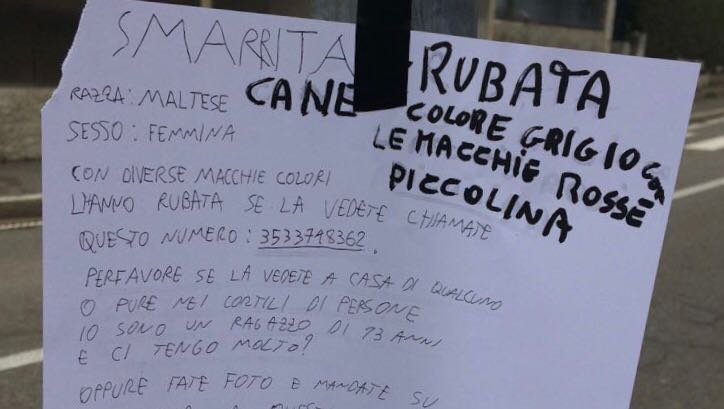 SMARRITA RUBATA
RAZZA: MALTESE CANE
COLORE GRIGIO CON
SESSO: FEMMINA
LE MACCHIE ROSSE
PICCOLINA
CON DIVERSE MACCHIE COLORI
L'HANNO RUBATA SE LA VEDETE CHIAMATE
QUESTO NUMERO: 3533748362.
PERFAVORE SE LA VEDETE A CASA DI QUALCUNO
O PURE NEI CORTILI DI PERSONE
IO SONO UN RAGAZZO DI 13 ANNI
E CI TENGO MOLTO?
OPPURE FATE FOTO E MANDATE SU